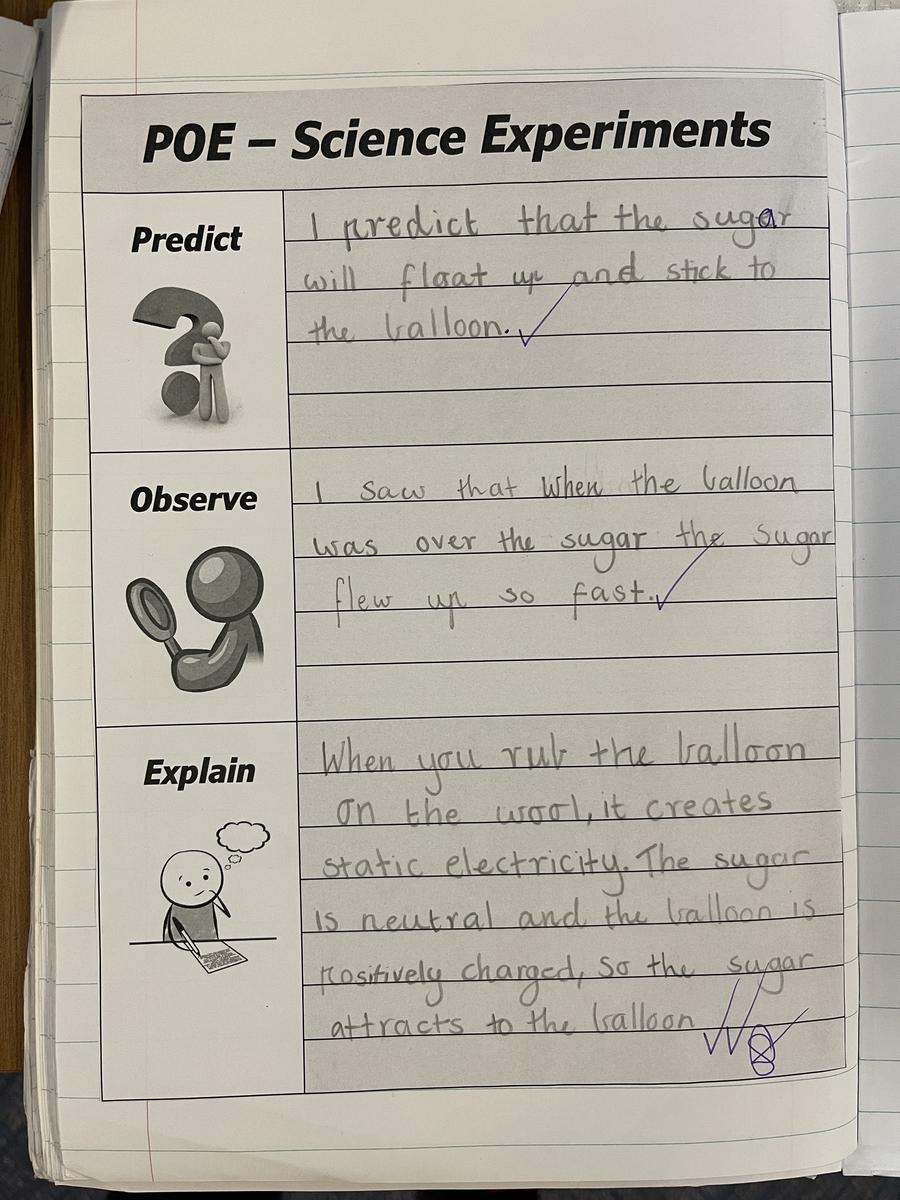 POE – Science Experiments
Predict
I predict that the sugar
will float up and stick to
the balloon.
Observe
I saw that when the balloon
was over the sugar the sugar
flew up so fast.
Explain
When you rub the balloon
on the wool, it creates
static electricity. The sugar
is neutral and the balloon is
positively charged, so the sugar
attracts to the balloon